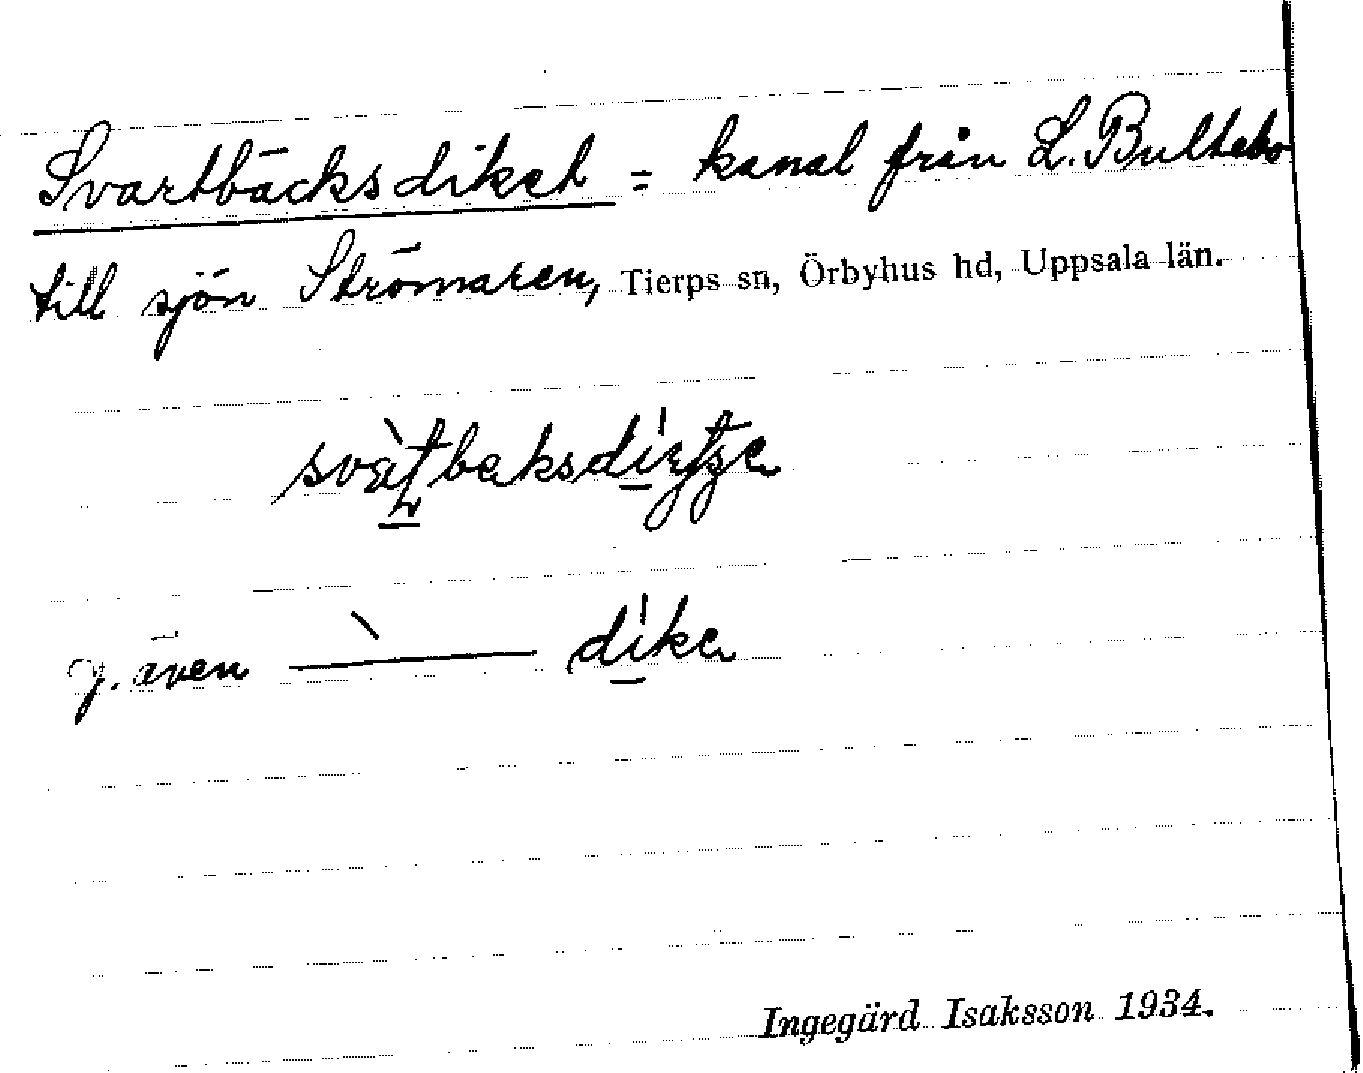 Svartbäcksdiket = kanal från L. Bultebo
till sjön Strömaren, Tierps sn, Örbyhus hd, Uppsala län.
y. även ——— dike
Ingegärd Isaksson 1934.